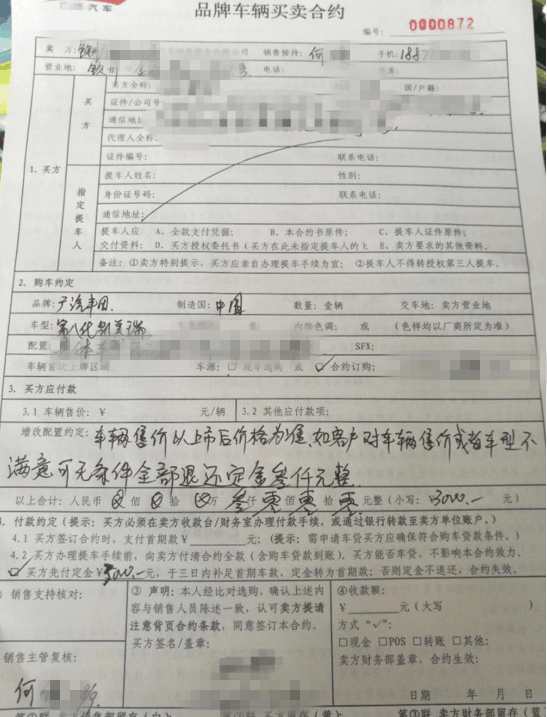 汽车
品牌车辆买卖合约
编号: 0000872
卖 方: 公司 销售接待: 何 手机: 188
营业地: 电话:
买方全称: 国/户籍:
证件/公司号
通信地
代理人全称
证件编号: 联系电话:
1. 买方
买方
指定提车人
提车人姓名: 性别:
身份证号码: 联系电话:
通信地址:
提车人应 A. 全款支付凭据: B. 本合约书原件: C. 提车人证件原件:
交付资料: D. 买方授权委托书(买方在此未指定提车人的): E. 卖方要求的其他资料。
备注: ①卖方特别提示,买方应亲自办理提车手续为宜; ②提车人不得转授权第三人提车。
2. 购车约定
品牌: 广汽丰田 制造国: 中国 数量: 壹辆 交车地: 卖方营业地
车型: 第八代凯美瑞 内饰色调: 或 (色样均以厂商所定为准)
配置: SFX:
车辆首次上牌区域: 车源: □ 现车选购 或 ✓ 合约订购:
3. 买方应付款
3.1 车辆售价: ¥ 元/辆 3.2 其他应付款项:
增改配置约定: 车辆售价以上市后价格为准, 如客户对车辆售价或者车型不
满意可无条件全部退还定金叁仟元整.
以上合计: 人民币 佰 拾 万 叁仟 零佰 零拾 零元整(小写: 3000.- 元)
. 付款约定(提示: 买方必须在卖方收款台/财务室办理付款手续,或通过银行转款至卖方单位账户。)
4.1 买方签订合约时,支付首期款¥ 元。(提示: 需申请车贷买方应确保符合购车贷款条件。)
4.2 买方办理提车手续前,向卖方付清合约全款(含购车贷款到账)。买方能否车贷、不影响本合约效力。
✓ 买方先付定金¥3000.-元,于三日内补足首期车款,定金转为首期款; 否则定金不退还,合约失效。
①销售支持核对:
② 声明: 本人经比对选购,确认上述
内容与销售人员陈述一致,认可卖方提请
注意背页合约条款,同意签订本合约。
买方签名/盖章:
④收款额:
¥ 元(大写 )
方式“✓”:
□现金 □POS □转账 □其他:
卖方财务部盖章,合约生效:
日期 年 月 日
销售主管复核:
何
第①联 卖方销售部留存(白) 第③联 卖方财务部留存(蓝)